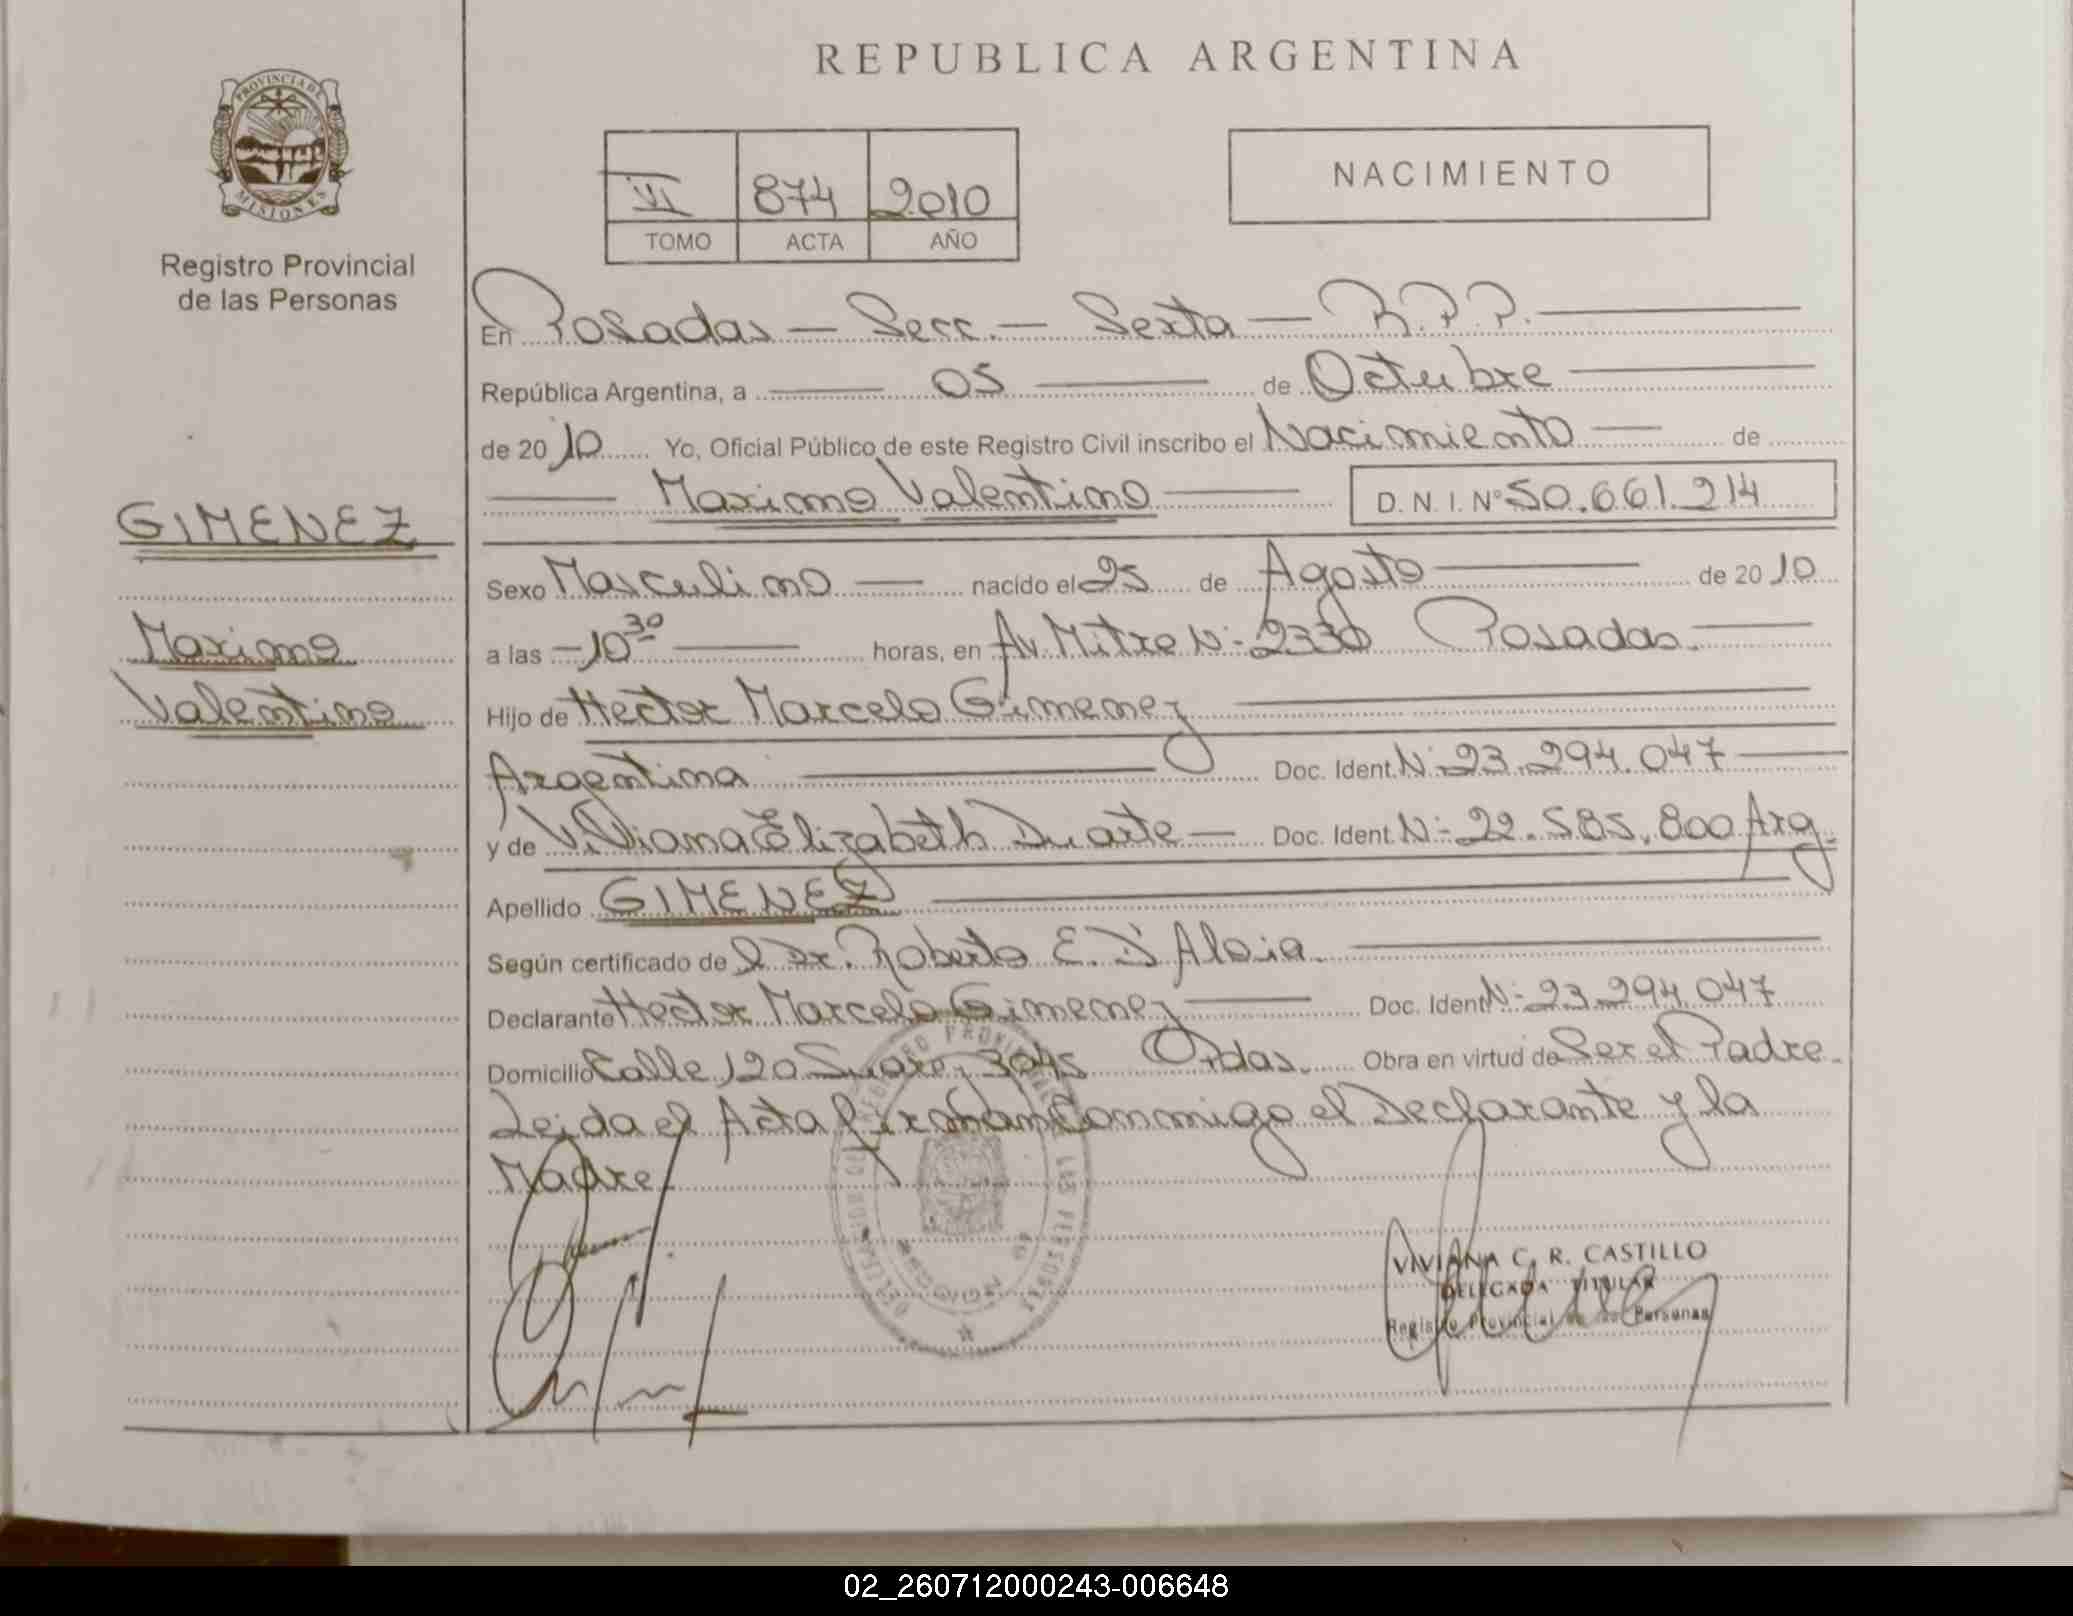 REPUBLICA ARGENTINA
PROVINCIA DE
MISIONES
Registro Provincial
de las Personas
VI 874 2010
TOMO ACTA AÑO
NACIMIENTO
En Posadas — Secc. — Sexta — R.P.P.
República Argentina, a 05 de Octubre
de 2010 Yo, Oficial Público de este Registro Civil inscribo el Nacimiento de
Maximo Valentino D. N. I. Nº 50.661.214
GIMENEZ
Maximo
Valentino
Sexo Masculino nacido el 25 de Agosto de 2010
a las 10 30 horas, en Av. Mitre Nº 2330 Posadas.
Hijo de Hector Marcelo Gimenez
Argentina Doc. Ident. Nº 23.294.047
y de Viviana Elizabeth Duarte Doc. Ident. Nº 22.585.800 Arg.
Apellido GIMENEZ
Según certificado de l Dr. Roberto E. D'Aloia.
Declarante Hector Marcelo Gimenez Doc. Ident Nº 23.294.047
Domicilio Calle 120 Suarez 3045 Pdas. Obra en virtud de Ser el Padre.
Leida el Acta firman Conmigo el Declarante y la
Madre
VIVIANA C. R. CASTILLO
DELEGADA TITULAR
Registro Provincial de las Personas
02_260712000243-006648